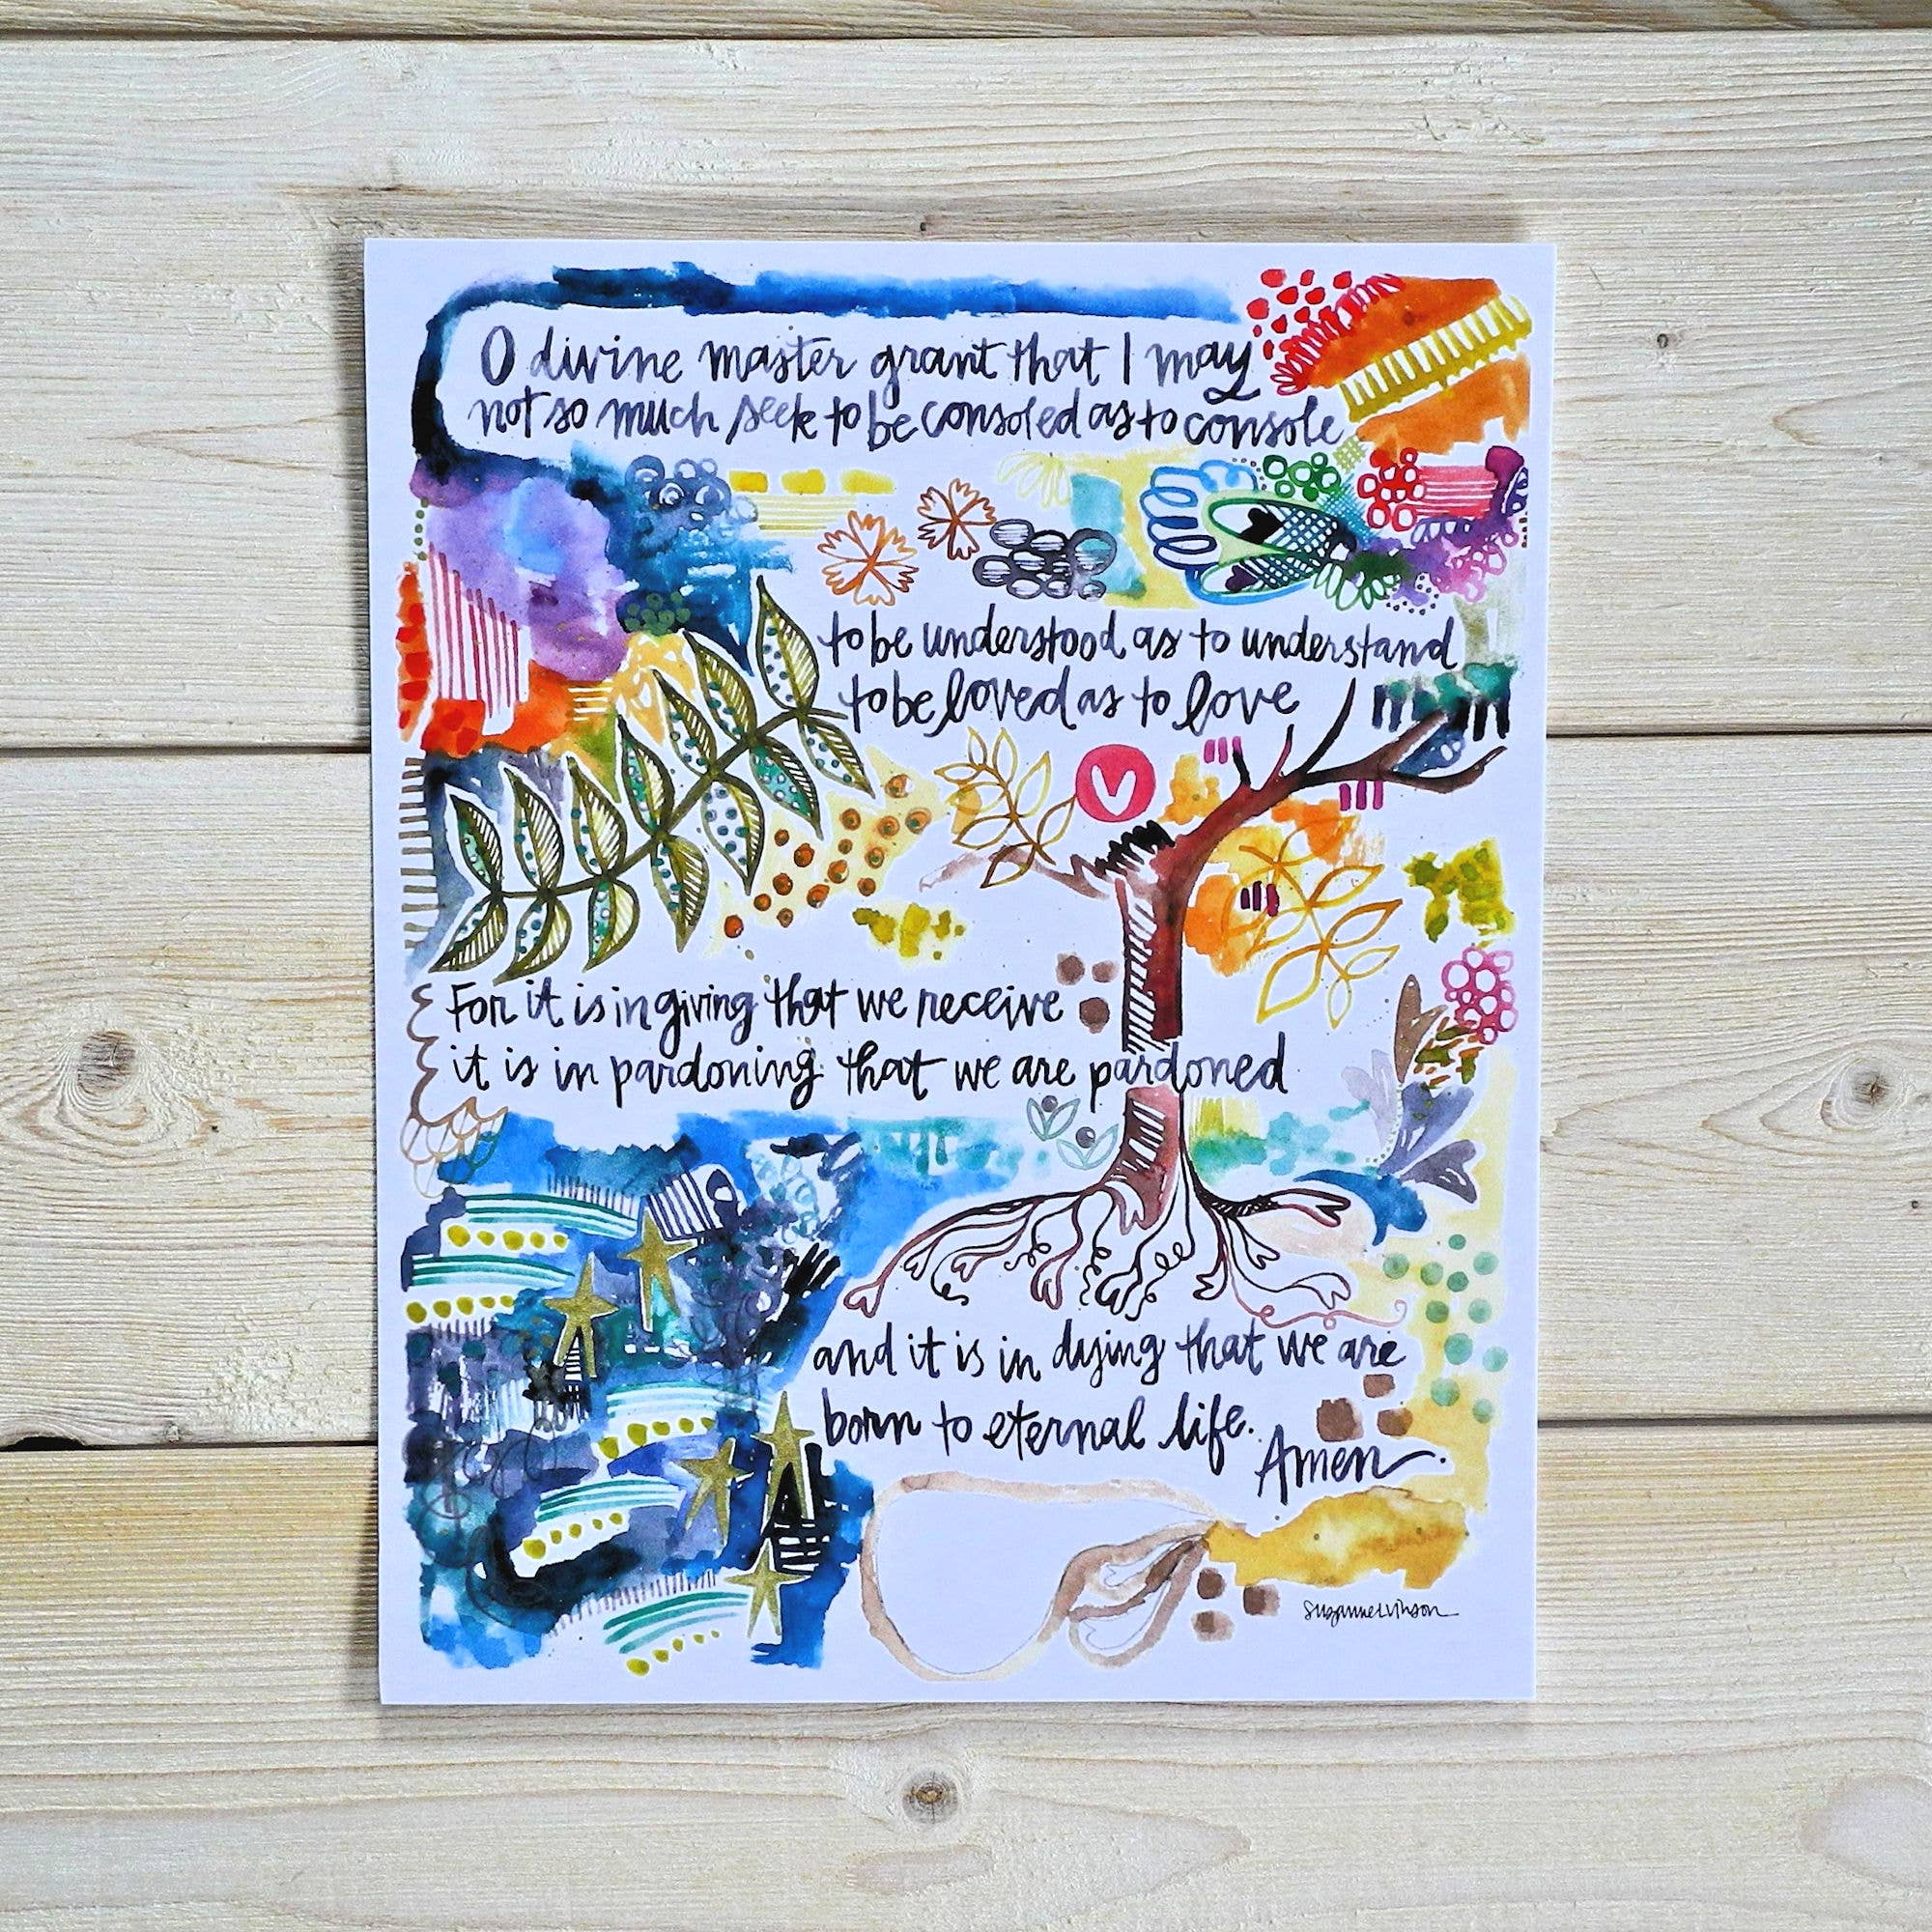 O divine master grant that I may
not so much seek to be consoled as to console
to be understood as to understand
to be loved as to love
For it is in giving that we receive
it is in pardoning that we are pardoned
and it is in dying that we are
born to eternal life.
Amen.
SuzanneVinson